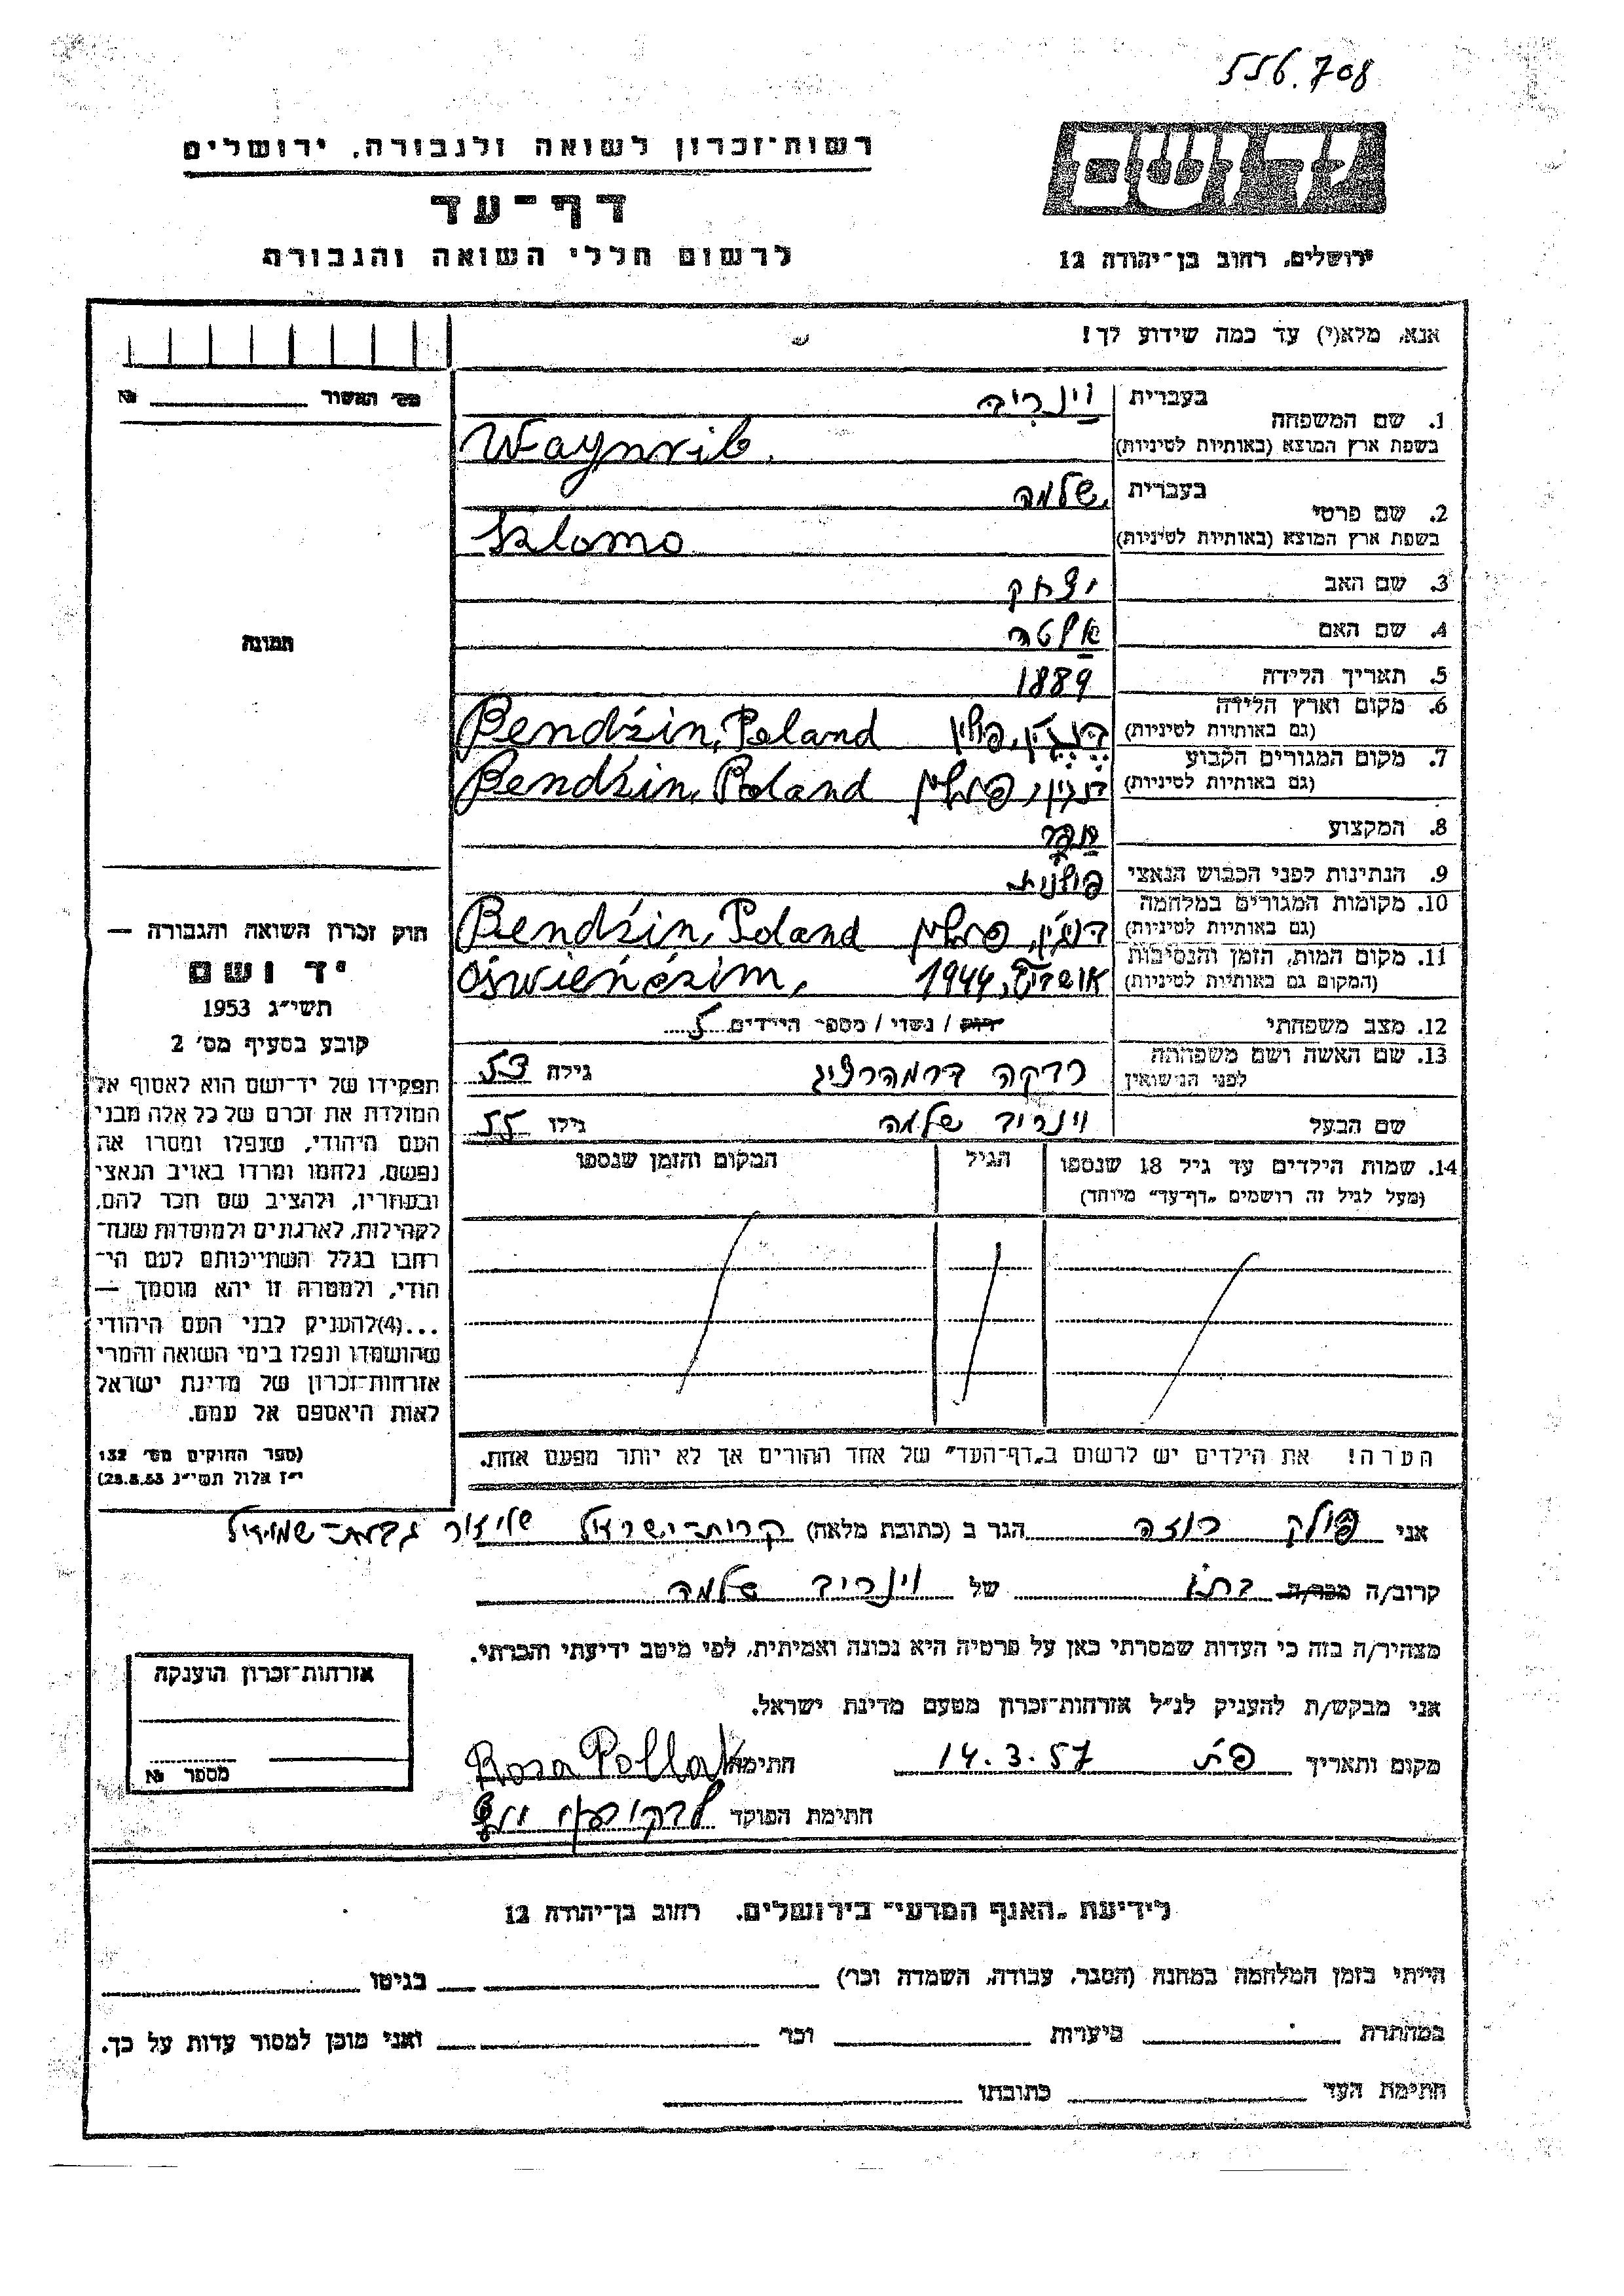 556.708
רשות־זכרון לשואה ולגבורה, ירושלים
דף־עד
לרשום חללי השואה והגבורה
יד ושם
ירושלים, רחוב בן־יהודה 12
אנא, מלא(י) עד כמה שידוע לך!
מס' האשור №
תמונה
1. שם המשפחה בעברית וינריב
בשפת ארץ המוצא (באותיות לטיניות) Waynrib.
2. שם פרטי בעברית שלמה
בשפת ארץ המוצא (באותיות לטיניות) Szlomo
3. שם האב יצחק
4. שם האם אלטה
5. תאריך הלידה 1889
6. מקום וארץ הלידה (גם באותיות לטיניות) בנדז'ין, פולין Bendźin, Poland
7. מקום המגורים הקבוע (גם באותיות לטיניות) בנדזין, פולין Bendźin, Poland
8. המקצוע
9. הנתינות לפני הכבוש הנאצי פולנית
10. מקומות המגורים במלחמה (גם באותיות לטיניות) בנדזין, פולין Bendźin, Poland
11. מקום המות, הזמן והנסיבות (המקום גם באותיות לטיניות) אושויץ, 1944 Oświeńczim,
12. מצב משפחתי רווק / נשוי / מספר הילדים 5
13. שם האשה ושם משפחתה לפני הנישואין רבקה גילה 53
שם הבעל וינריב שלמה גילו 55
14. שמות הילדים עד גיל 18 שנספו הגיל המקום והזמן שנספו
(מעל לגיל זה רושמים „דף־עד" מיוחד)
הערה! את הילדים יש לרשום ב„דף־העד" של אחד ההורים אך לא יותר מפעם אחת.
חוק זכרון השואה והגבורה —
יד ושם
תשי"ג 1953
קובע בסעיף מס' 2
תפקידו של יד־ושם הוא לאסוף אל
המולדת את זכרם של כל אלה מבני
העם היהודי, שנפלו ומסרו את
נפשם, נלחמו ומרדו באויב הנאצי
ובעוזריו, ולהציב שם וזכר להם,
לקהילות, לארגונים ולמוסדות שנח־
רבו בגלל השתייכותם לעם הי־
הודי, ולמטרה זו יהא מוסמך —
...(4)להעניק לבני העם היהודי
שהושמדו ונפלו בימי השואה והמרי
אזרחות־זכרון של מדינת ישראל
לאות היאספם אל עמם.
(ספר החוקים מס' 132
י"ז אלול תשי"ג 28.8.53)
אני פולק רוזה הגר ב (כתובת מלאה) קרית־ישראל
קרוב/ה מכר/ה בתו של וינריב שלמה
מצהיר/ה בזה כי העדות שמסרתי כאן על פרטיה היא נכונה ואמיתית, לפי מיטב ידיעתי והכרתי.
אני מבקש/ת להעניק לנ"ל אזרחות־זכרון מטעם מדינת ישראל.
מקום ותאריך פ"ת 14.3.57 חתימת Rosa Pollak
חתימת הפוקד
אזרחות־זכרון הוענקה
מספר №
לידיעת „האגף המדעי" בירושלים, רחוב בן־יהודה 12
הייתי בזמן המלחמה במחנה (הסגר, עבודה, השמדה וכו') בגיטו
במחתרת ביערות וכו' ואני מוכן למסור עדות על כך.
חתימת העד כתובתו